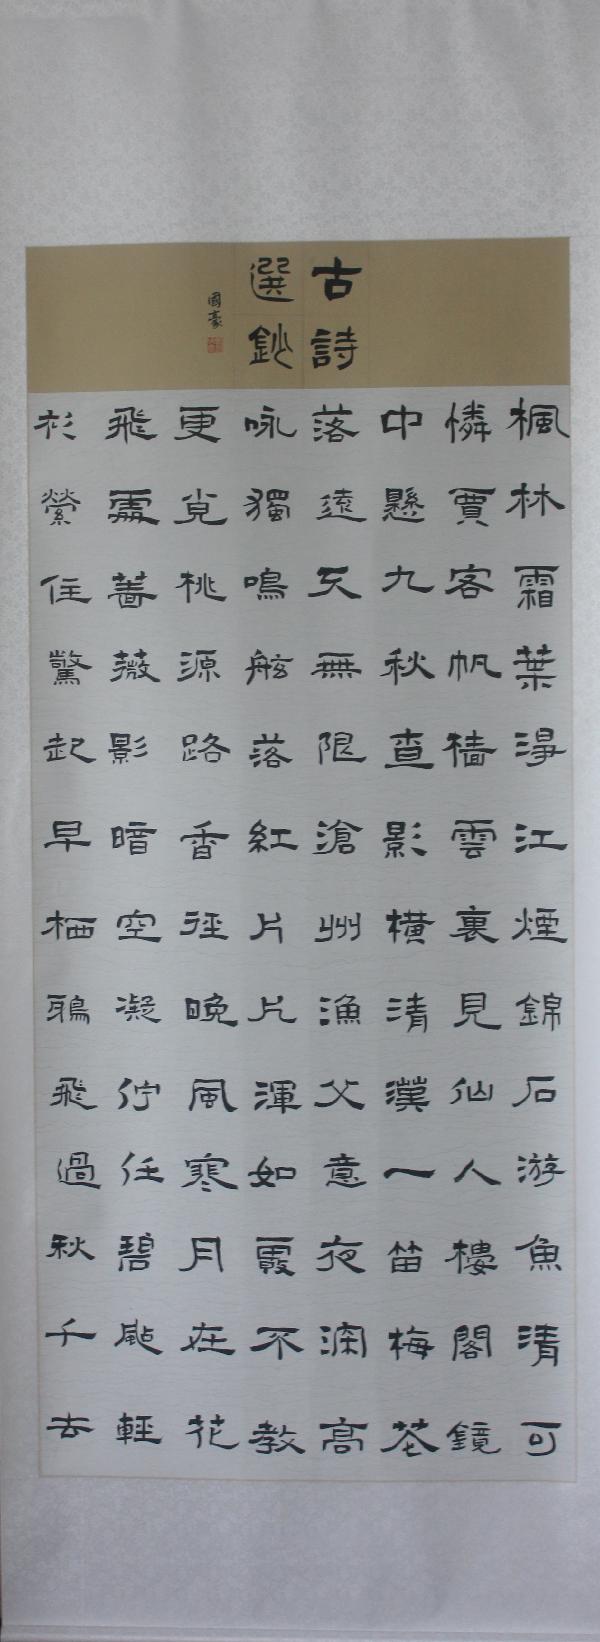 古詩
選鈔
國豪
楓林霜葉淨江煙錦石游魚清可
憐賈客帆檣雲裏見仙人樓閣鏡
中懸九秋查影橫清漢一笛梅花
落遠天無限滄州漁父意夜深高
咏獨鳴舷落紅片片渾如霞不教
更覓桃源路香徑晚風寒月在花
飛處薔薇影暗空凝佇任碧颭輕
衫縈住驚起早栖鴉飛過秋千去